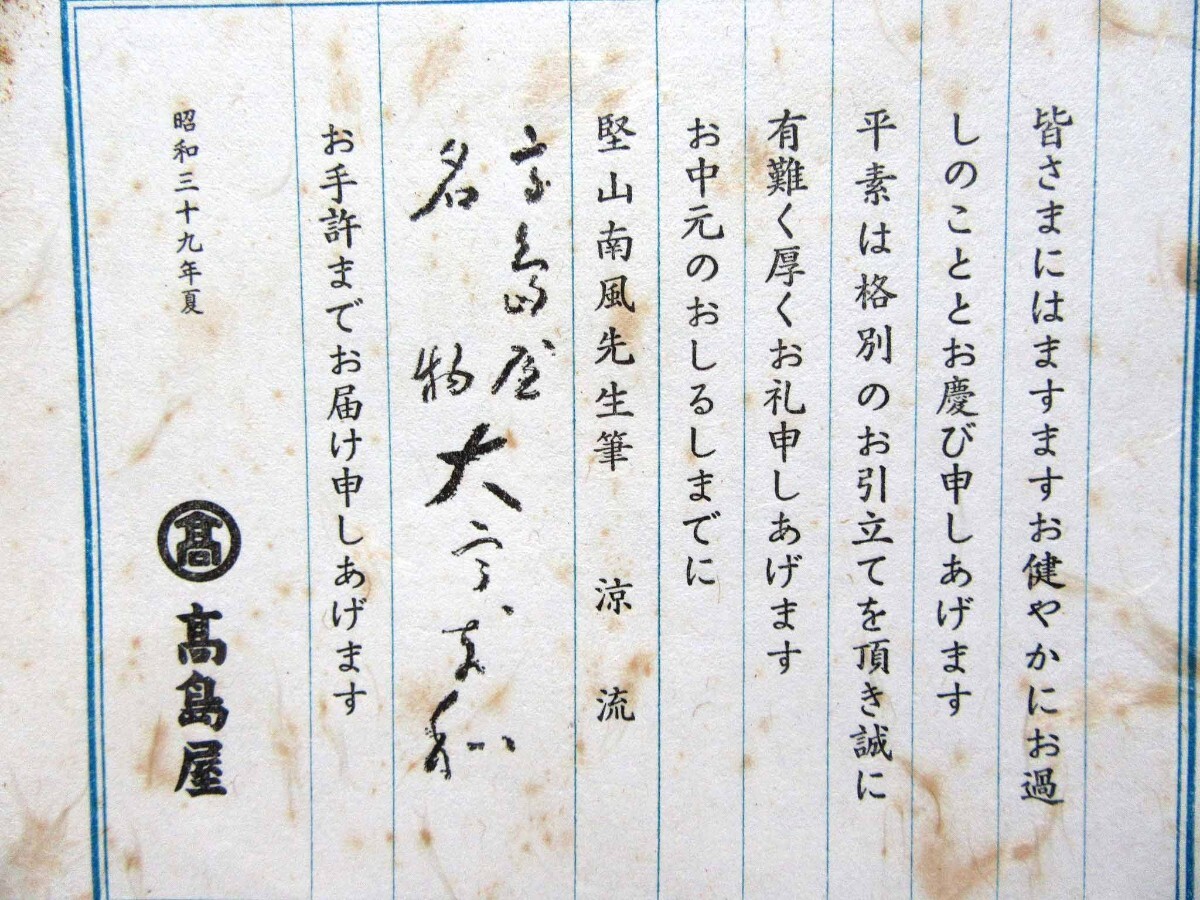 皆さまにはますますお健やかにお過
しのこととお慶び申しあげます
平素は格別のお引立てを頂き誠に
有難く厚くお礼申しあげます
お中元のおしるしまでに
堅山南風先生筆　涼　流
高島屋
名物
大うちわ
お手許までお届け申しあげます
昭和三十九年夏
髙 髙島屋